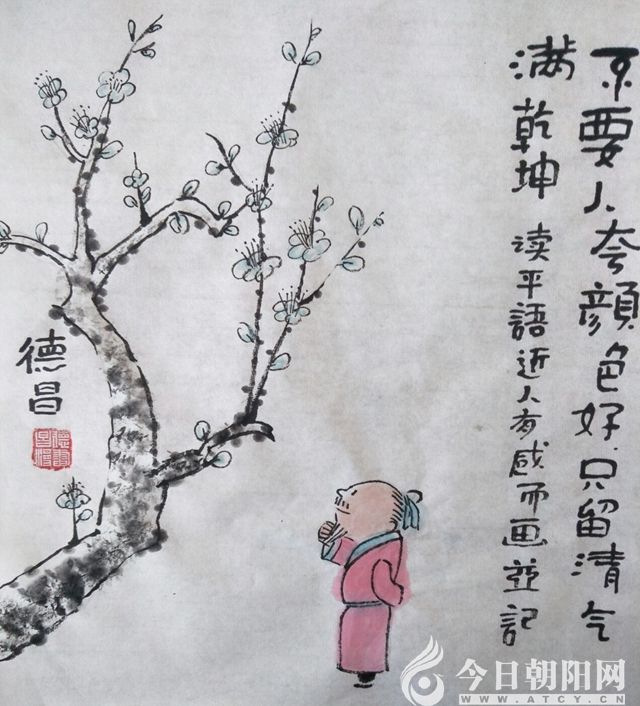 不要人夸顔色好只留清气
满乾坤 读平語近人有感而画並記
德昌
今日朝阳网
WWW.ATCY.CN